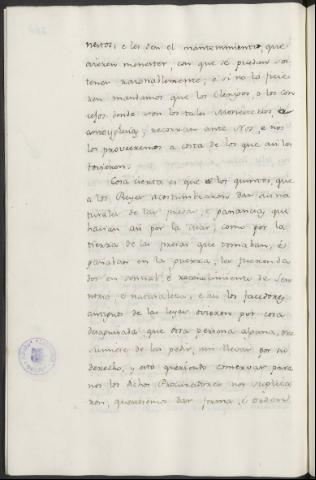 nestos, e les den el mantenimiento, que
ovieren menester, con que se puedan sos
tener razonablemente; e si no lo ficie
ren mandamos que los Clerigos, o los con
cejos donde son los tales Monesterios, o
recorran ante Nos, e nos
los proveeremos a costa de los que asi los
tovieren.
Cosa cierta es que los quintos, que
a los Reyes acostumbraron dar sus na
turales de las presas, e ganancias que
havian asi por la mar, como por la
tierra de las presas que tomaban, é
ganaban en la guerra, les fueron da
dos en señal é reconocimiento de Seño
rio e naturaleza, e asi los facedores
antiguos de las leyes ovieron por cosa
desaguisada que otra persona alguna, pre
sumiere de los pedir, nin llevar por su
derecho, y esto queriendo conservar para
nos los dichos Procuradores nos suplica
ron, quisiesemos dar forma, é orden